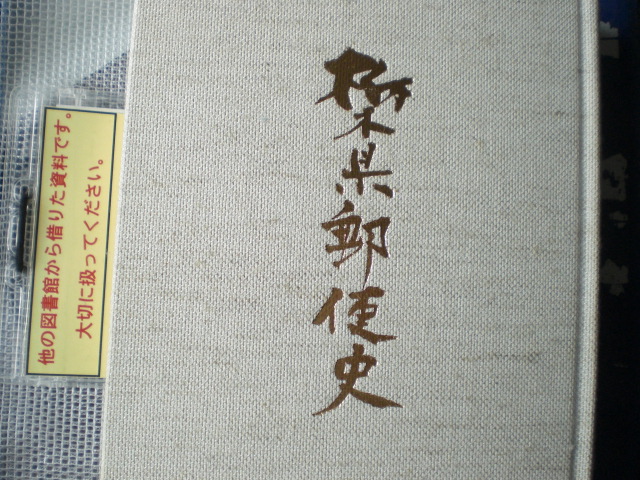 栃木県郵便史
他の図書館から借りた資料です。
大切に扱ってください。